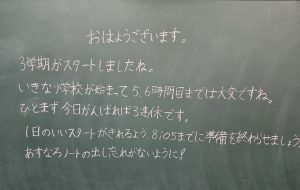 おはようございます。
3学期がスタートしましたね。
いきなり学校が始まって5,6時間目までは大変ですね。
ひとまず、今日がんばれば3連休です。
1日のいいスタートがきれるよう、8:05までに準備を終わらせましょう。
あすなろノートの出し忘れがないように!